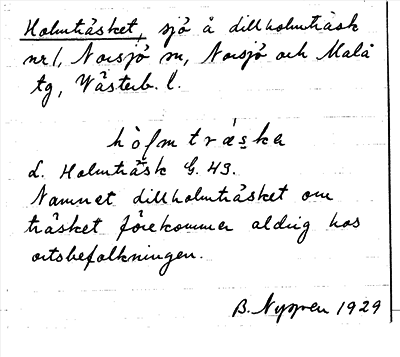 Holmträsket, sjö å dillholmträsk
nr 1, Norsjö sn, Norsjö och Malå
tg, Västerb. l.
hò̀lmtrǽska
L. Holmträsk G. 43.
Namnet dillholmträsket om
träsket förekommer aldrig hos
ortsbefolkningen.
B. Nygren 1929